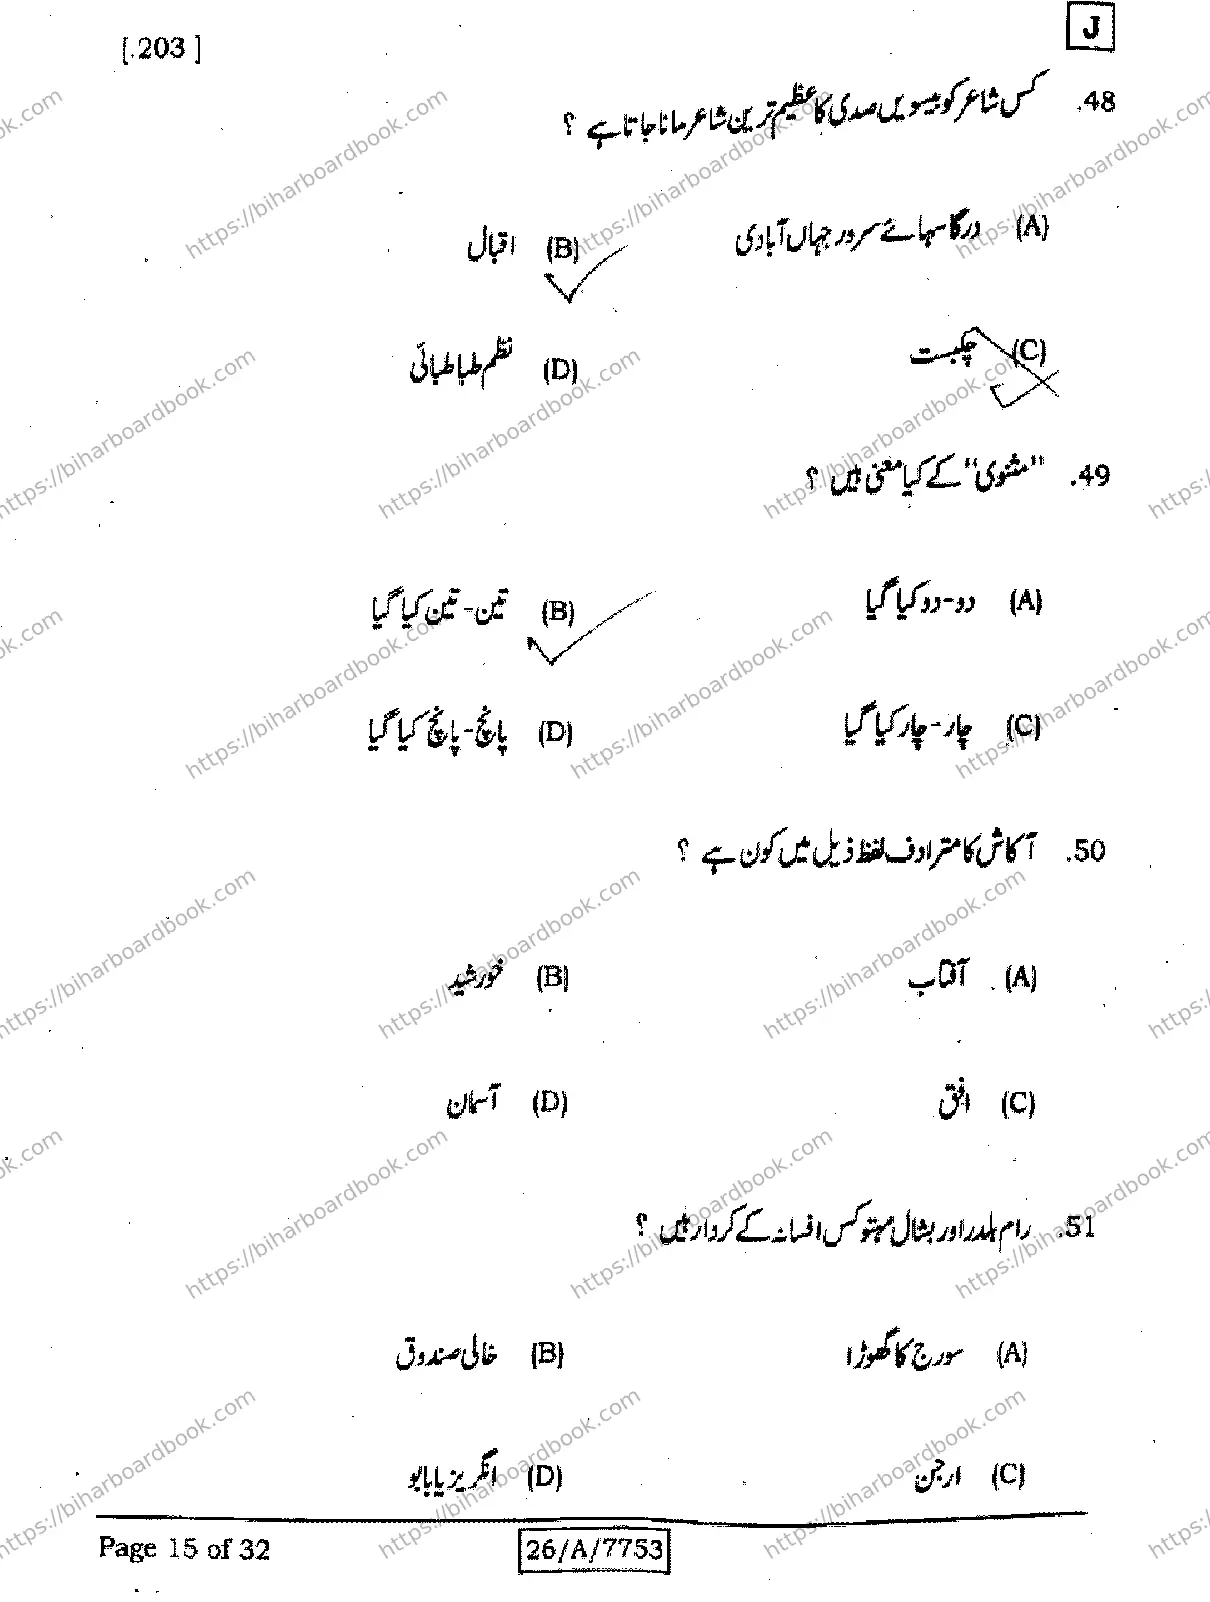 [ 203 ]
J
48. کس شاعر کو بیسویں صدی کا عظیم ترین شاعر مانا جاتا ہے ؟
(A) درگا سہائے سرور جہاں آبادی
(B) اقبال
(C) چکبست
(D) نظم طباطبائی
49. "مثنوی" کے کیا معنی ہیں ؟
(A) دو-دو کیا گیا
(B) تین-تین کیا گیا
(C) چار-چار کیا گیا
(D) پانچ-پانچ کیا گیا
50. آکاش کا مترادف لفظ ذیل میں کون ہے ؟
(A) آفتاب
(B) خورشید
(C) افق
(D) آسمان
51. رام بلدر اور بشال مہتو کس افسانہ کے کردار ہیں ؟
(A) سورج کا گھوڑا
(B) خالی صندوق
(C) ارجن
(D) انگریزیا بابو
Page 15 of 32
26/A/7753
https://biharboardbook.com